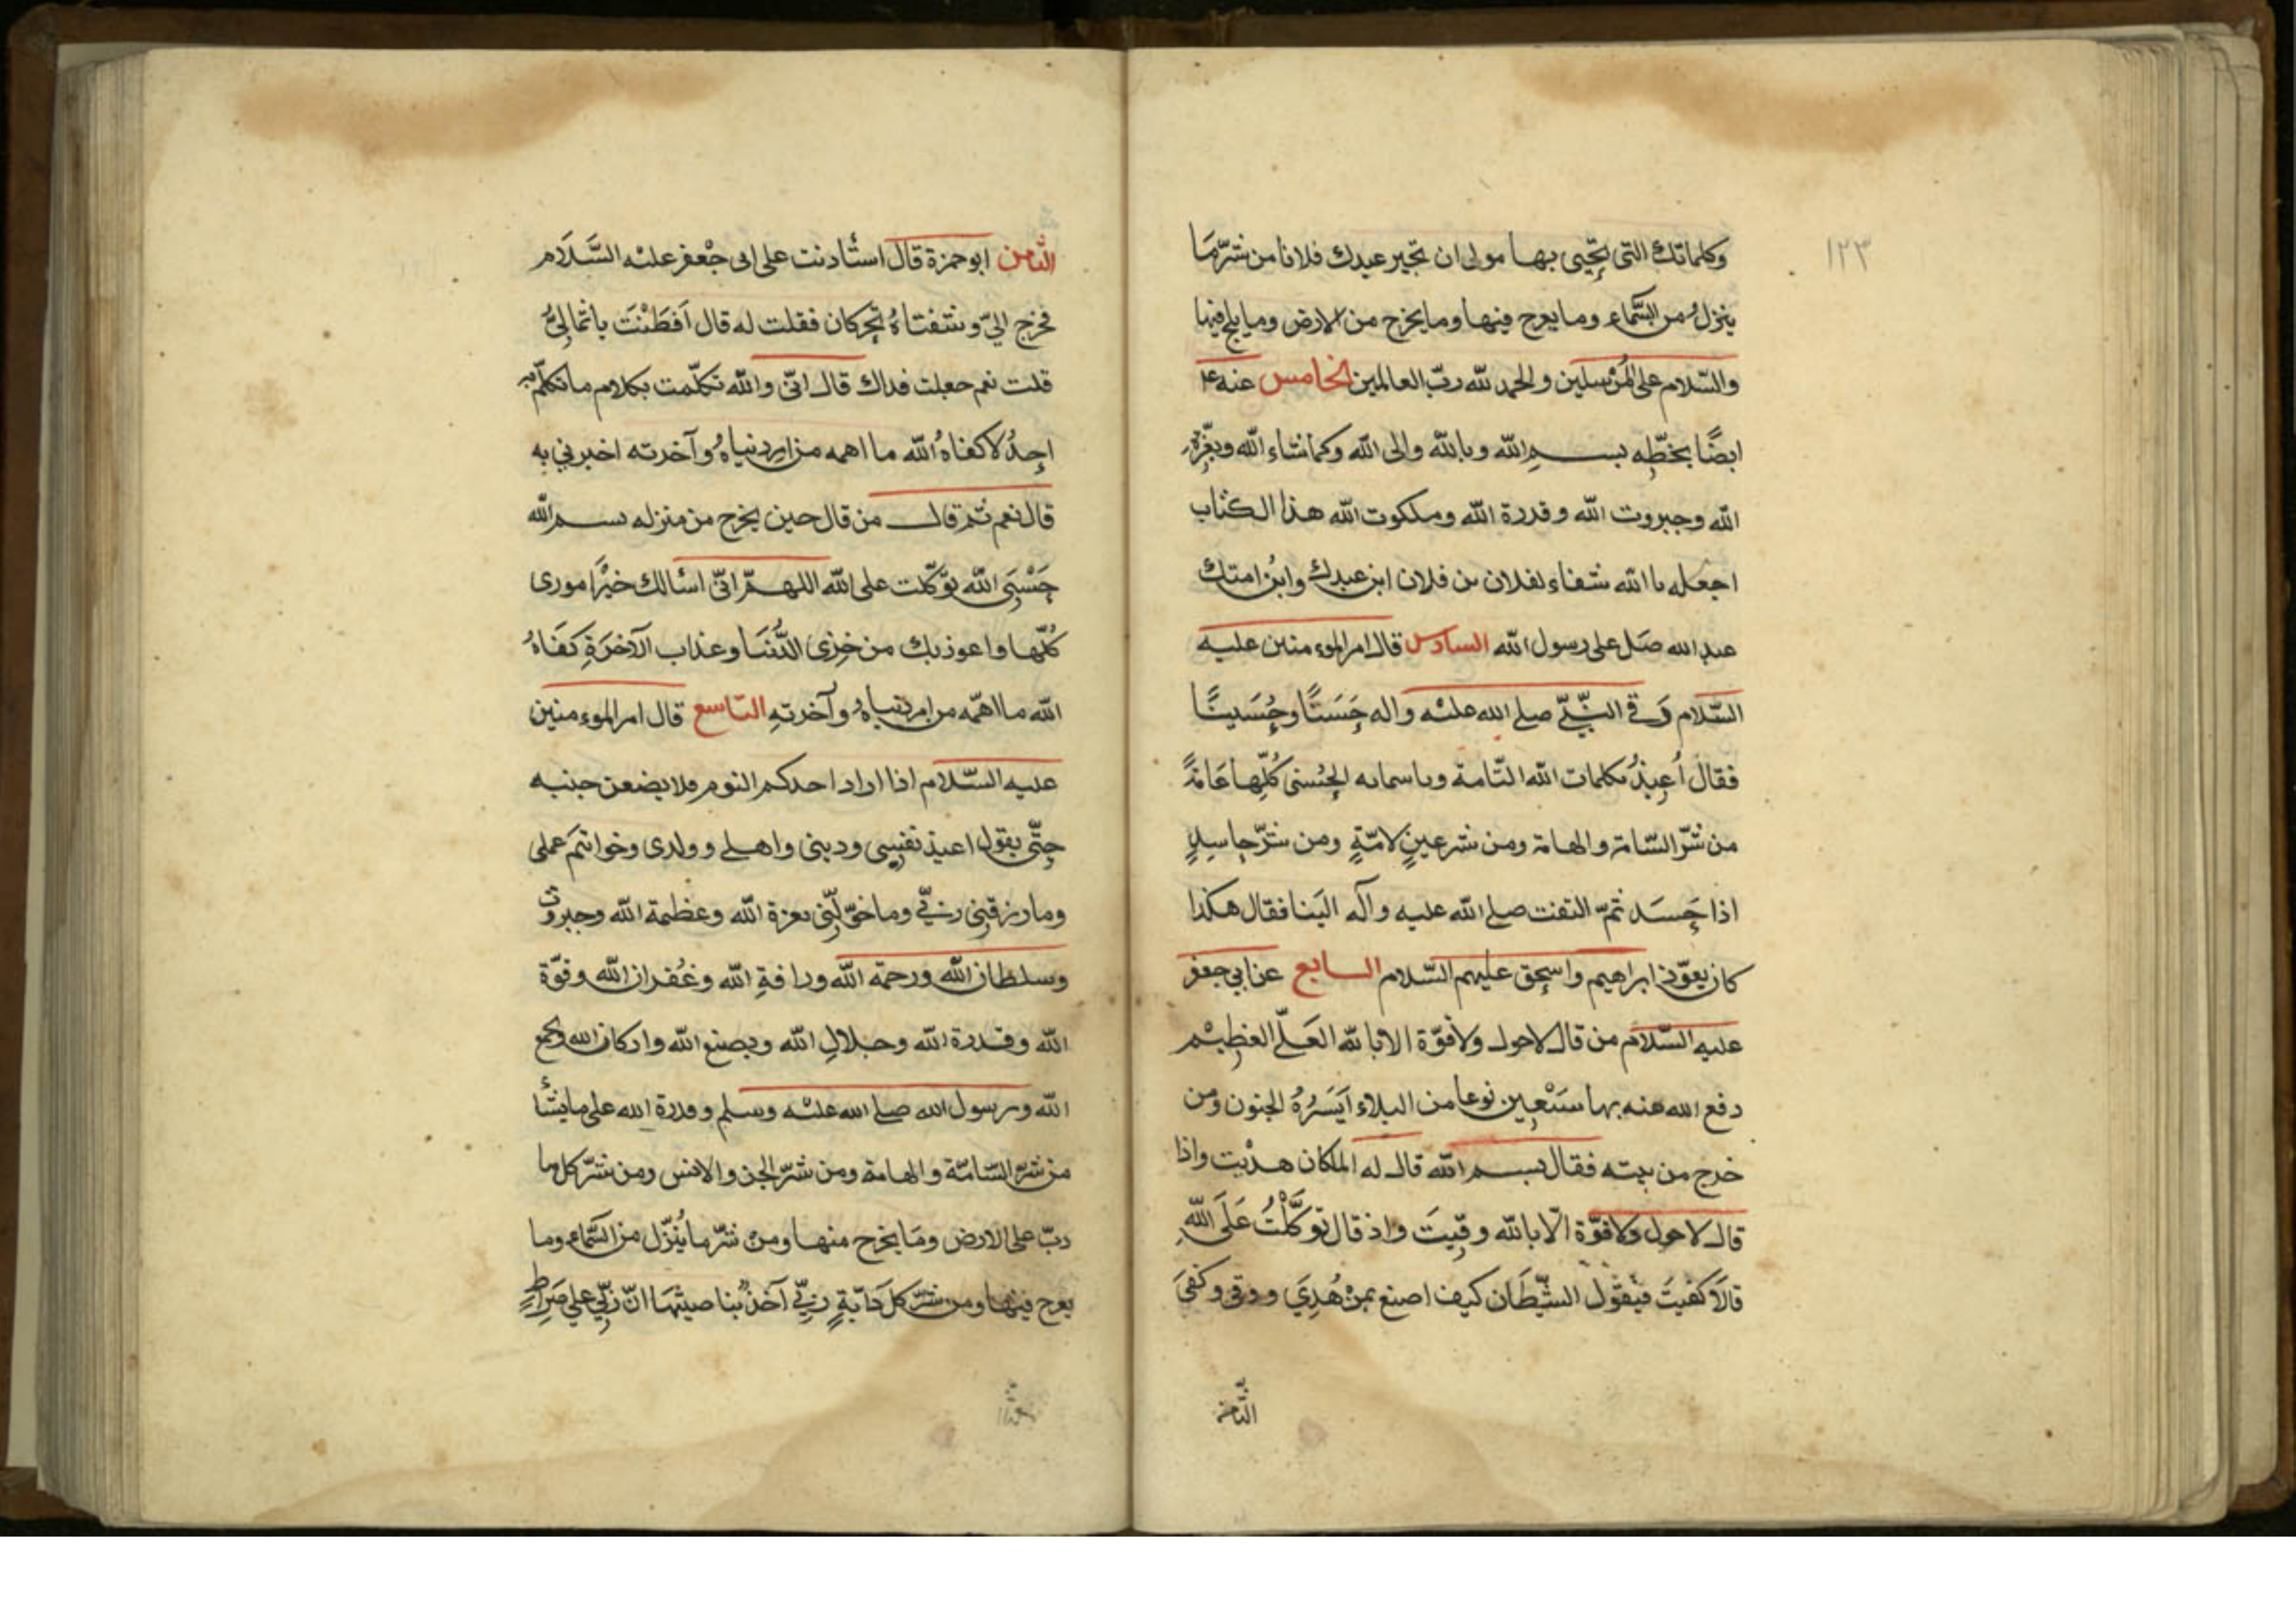 ١٢٣
وكلماتك التى تحيى بها مولى ان تجير عبدك فلانا من شرّ ما
ينزل من السّماء وما يعرج فيها وما يخرج من الارض وما يلج فيها
والسّلام على المرسلين والحمد لله ربّ العالمين الخامس عنه ع
ايضًا بخطّه بسم الله وبالله والى الله وكما شاء الله وبعزّة
الله وجبروت الله وقدرة الله وملكوت الله هذا الكتاب
اجعله يا الله شفاء لفلان بن فلان ابن عبدك وابن امتك
عبد الله صَل على رسول الله السادس قال امير الموءمنين عليه
السّلام رَقى النّبيّ صلى الله عليه واله حَسَنًا وحُسَينًا
فقال اُعيذُ بكلمات الله التّامة وباسمائه الحُسنى كُلّها عَامّةً
من شرّ السّامة والهامة ومن شر عينٍ لامّةٍ ومن شرّ حاسدٍ
اذا حَسَد ثمّ التفت صلى الله عليه وآله الَينا فقال هكذا
كان يعوّذ ابراهيم واسحق عليهم السّلام السابع عن ابى جعفر
عليه السّلام من قال لاحول ولاقوّة الا بالله العَلّى العَظِيْم
دفع الله عنه بها سَبْعِين نوعا من البلاء اَيَسَرُهُ الجنون ومن
خرج من بيته فقال بسم الله قال له الملكان هديت واذا
قال لاحول ولاقوّة الّا بالله وقِيتَ واذ قال توَكَّلْتُ عَلَى اللهِ
قالَا كفيتَ فيَقُول الشّيطَان كيف اصنع بمنْ هُدِيَ ووقى وكفىَ
الثّامن
الثّامن ابوحمزة قال استأذنت على ابى جْعفر عليه السَّلَام
فخرج اليّ وشفتاهُ تحركان فقلت له قال اَفَطَنْتَ يا ثمالِىُّ
قلت نعم جعلت فداك قال انّى والله تكلّمت بكلام ما تكلّم به
احدُ لا كفاهُ الله ما اهمه من امر دنياهُ وآخرته اخبرني به
قال نعم ثم قال من قال حين يخرج من منزله بسم الله
حَسْبِىَ الله توّكلت على الله اللهمّ انّى اسألك خيْر امورى
كُلّها واعوذ بك من خِزى الدُّنيَا وعذاب الآخرَةِ كَفَاهُ
الله ما اهَمّه من امر دنياهُ وآخرتهِ التّاسع قال امير الموءمنين
عليه السّلام اذا اراد احدكم النوم فلا يضعن جنبه
حتّى يقول اعيذ نفسِى ودينى واهلى وولدى وخواتيمَ عملى
وما رزقنِى ربّى وما خوّلَنِى بعزة الله وعظمة الله وجبروت
وسلطان الله ورحمة الله ورافةِ الله وغُفران الله وقوّة
الله وقدرة الله وجلالِ الله وبصنع الله واركان الله وبجمع
الله وبرسول الله صلى الله عليه وسلم وقدرة الله على ما يشأ
من شرّ السّامّة والهامة ومن شرّ الجن والانس ومن شرّ كل ما
دبّ على الارض ومَا يخرج منها ومنْ شرّ ما يُنزّل من السّماء وما
يعرج فيها ومن شرّ كل دَابّةٍ ربّى آخذٌ بناصيتها انّ ربّى على صِرَاطٍ